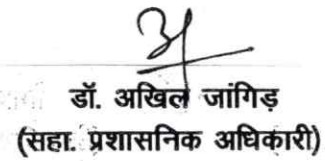 डॉ. अखिल जांगिड़
(सहा. प्रशासनिक अधिकारी)